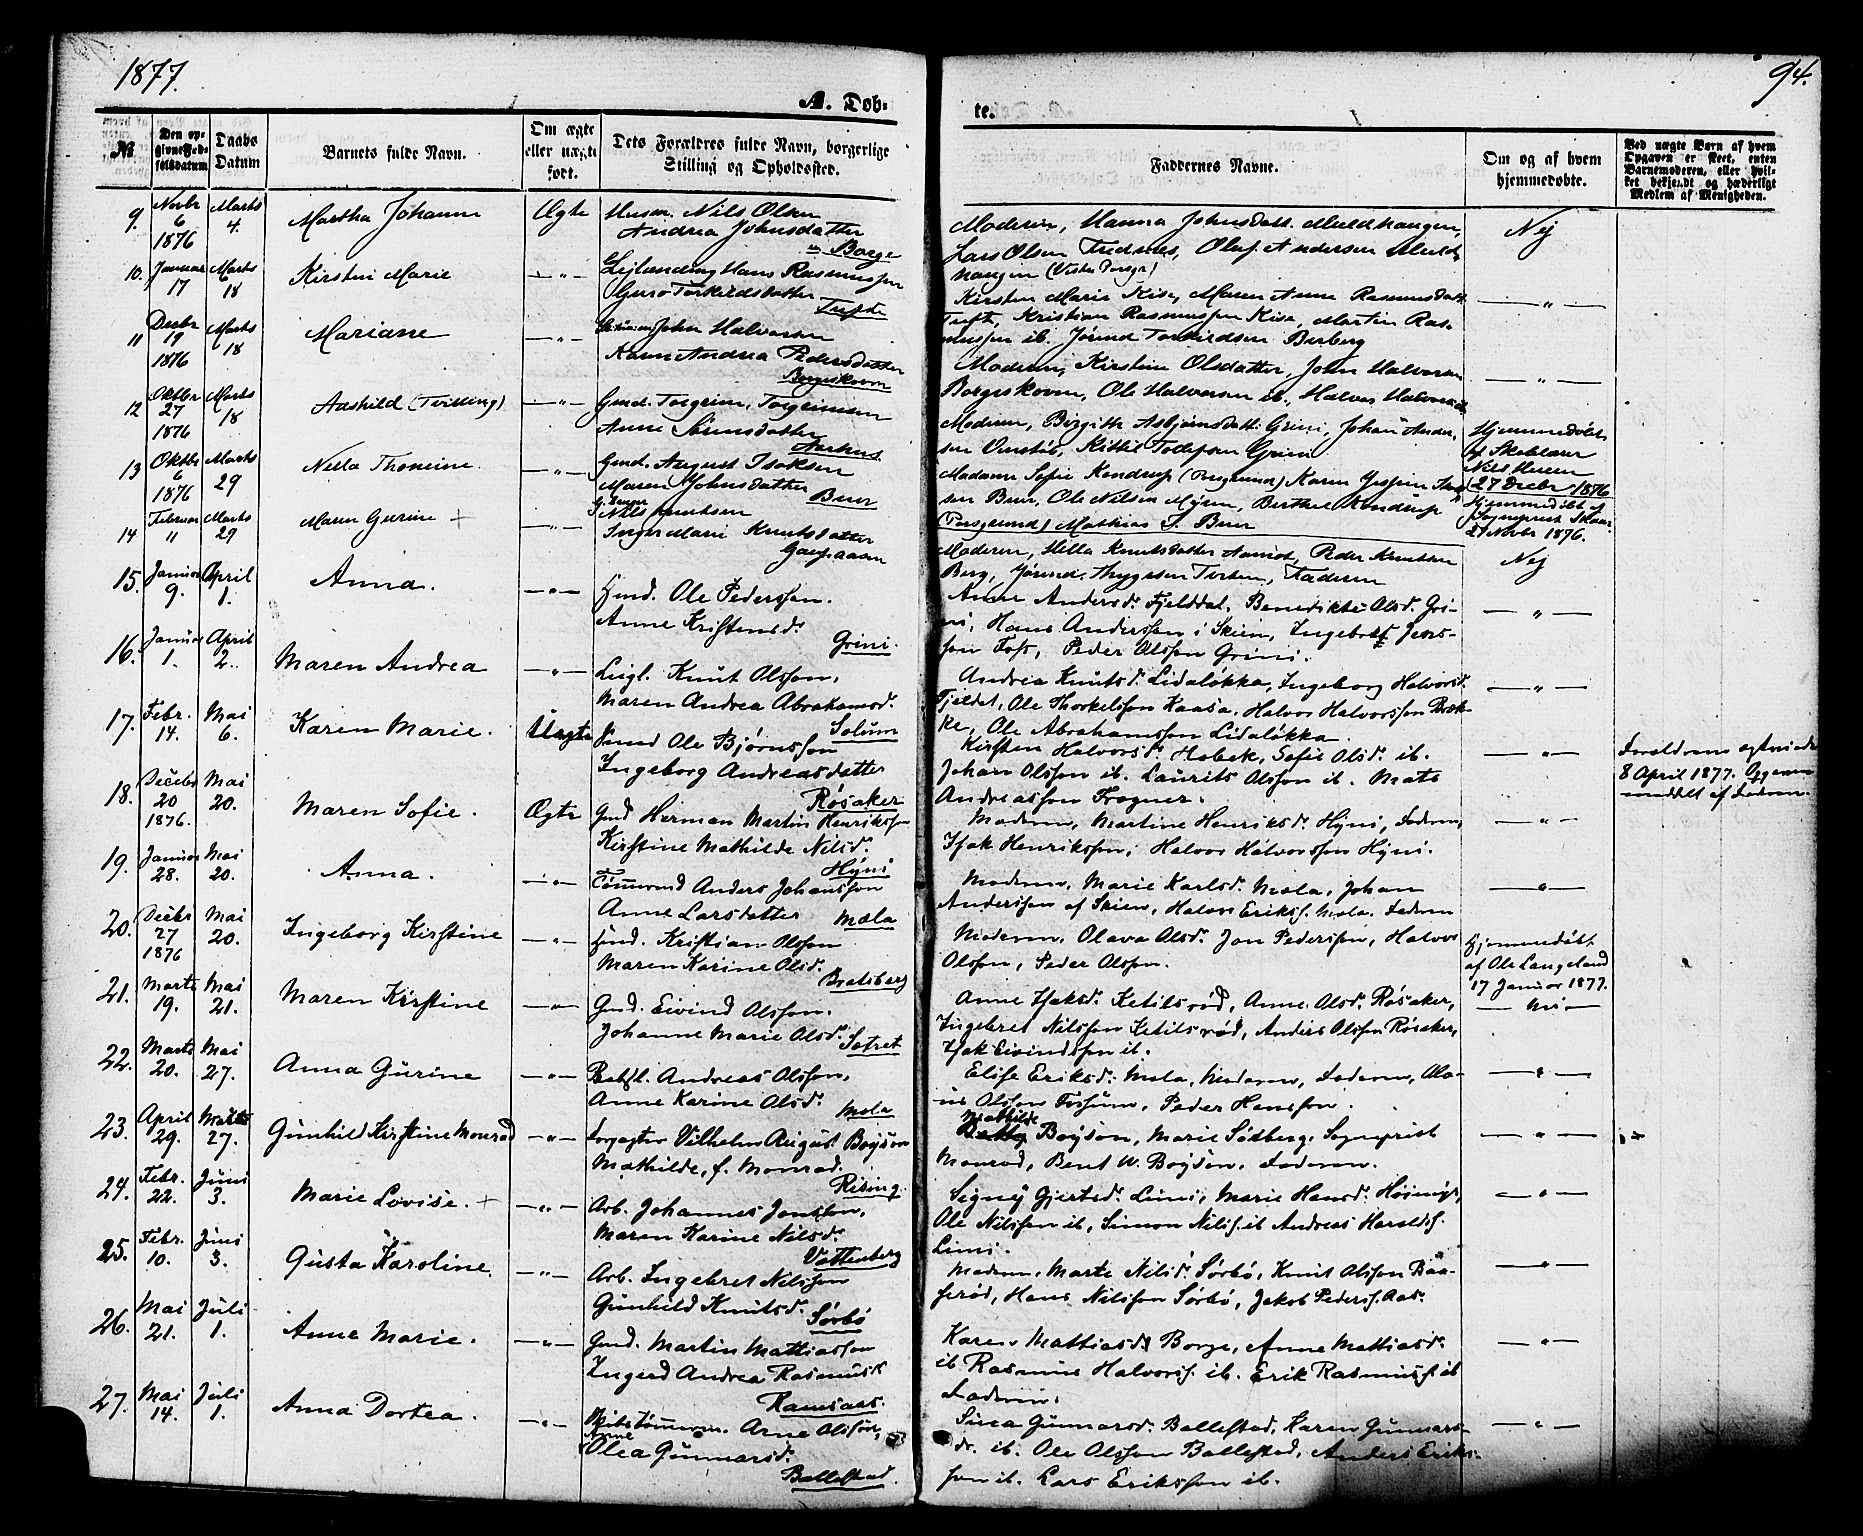 1877.
94.
A. Døb-
te.
№
Den opgivne Fødselsdatum
Daabs Datum
Barnets fulde Navn.
Om ægte eller uægte født.
Dets Forældres fulde Navn, borgerlige Stilling og Opholdssted.
Faddernes Navne.
Om og af hvem hjemmedøbt.
Ved uægte Børn af hvem Opgaven er skeet, enten Barnemoderen, eller hvilket bekjendt og hæderligt Medlem af Menigheden.
9. Novbr 6 1876 Marts 4. Martha Johanne Ægte Husm. Nils Olsen
Andrea Johnsdatter
Borge
Moderen, Hanna Johnsdatt.
Lars Olsen Olaf Andersen
Nej
10. Januar 17 Marts 18 Kirsten Marie — " — Leilænding Hans Rasmussen
Guro Torkildsdatter
Tufte
Kirsten Marie Kise, Maren Anne Rasmusdatt.
Tufte, Kristian Rasmussen Kise, Martin Ras-
mussen ib. Jørund Torkildsen Berberg
— " —
11 Decbr 19 1876 Marts 18 Mariane — " — John Halvorsen
Karen Andrea Pedersdatter
Borgeskoven
Moderen, Kirstine Olsdatter, John Halvorsen
Borgeskoven, Ole Halvorsen ib., Halvor Halvorsen
— " —
12 Oktbr 27 1876 Marts 18 Aashild (Tvilling) — " — Gmd. Torgrim Torgrimsen
Anne Sørensdatter
Aarhus
Moderen, Birgitte Asbjørnsdatt. Grini, Johan Ander-
sen Kittil Grini
Hjemmedøbt
af Skolelærer
Nils
27 Decbr 1876
13 Oktbr 6 1876 Marts 29 Nella Thomine. — " — Gmd. August Isaksen
Maren Johnsdatter
Buer
Madame Sofie Kondrup Karen
sen Buer, Ole Nilsen Myren, Berthe Kondrup
(Porsgrund) Mathias J. Buer
Hjemmedøbt af
Sogneprest
27 Novbr 1876.
14 Februar 11 Marts 29 Maren Gurine + — " — Nils Knutsen
Inger Marie Knutsdatter
Moderen, Hella Knutsdatter Peder Knutsen
Berg, Jørund Faderen
Nej
15. Januar 9. April 1. Anna. — " — Gmd. Ole Pederssen.
Anne Kristensd.
Grini.
Anne Andersd. Fjelddal, Benedikte Olsd. Gri-
ni, Hans Anderssen i Skien, Ingebret Jens-
sen Foss, Peder Olssen Grini.
— " —
16. Januar 1. April 2. Maren Andrea — " — Leigl. Knut Olssøn,
Maren Andrea Abrahamsd.
Solum
Andrea Knutsd. Lidaløkka, Ingeborg Halvorsd.
Fjeldet, Ole Thorkelssøn Kaasa, Halvor Halvorssøn Bræk-
ke, Ole Abrahamssøn Lidaløkka.
— " —
17. Febr. 14. Mai 6. Karen Marie. Uægte Smed Ole Bjørnssøn
Ingeborg Andreasdatter
Røsaker
Kirsten Halvorsd. Hobæk, Sofie Olsd. ib.
Johan Olssøn ib. Laurits Olssøn ib. Mats
Andreassøn Frogner.
— " —
Forældrene
8 April 1877. Opgaven
meddelt af Faderen.
18. Decebr 20 1876. Mai 20. Maren Sofie. Ægte Gmd Herman Martin Henrikssøn
Kirstine Mathilde Nilsd.
Hÿni
Moderen, Martine Henriksd. Hÿni, Faderen,
Isak Henrikssøn, Halvor Halvorssøn Hÿni.
— " —
19. Januar 28. Mai 20. Anna. — " — Tømmermd Anders Johanssøn
Anne Larsdatter Mæla
Moderen, Marie Karlsd. Mæla, Johan
Anderssøn af Skien, Halvor Erikss. Mæla. Faderen
— " —
20. Decbr 27 1876 Mai 20. Ingeborg Kirstine — " — Gmd. Kristian Olssøn
Maren Karine Olsd.
Bratsberg
Moderen, Olava Olsd. Jon Pederssøn, Halvor
Olssøn, Peder Olssøn.
Hjemmedøbt
af Ole Langeland
17 Januar 1877.
21. Marts 19. Mai 21. Maren Kirstine — " — Gmd. Eivind Olssøn.
Johanne Marie Olsd.
Sætret
Anne Isaksd. Ketilsrød, Anne Olsd. Røsaker,
Ingebret Nilssøn Ketilsrød, Anders Olssøn Røsaker,
Isak Eivindssøn ib.
— Nei —
22. Marts 20. Mai 27. Anna Gurine — " — Andreas Olssøn,
Anne Karine Olsd.
Mæla
Elise Eriksd. Mæla, Moderen, Faderen, Ola-
us Olssøn Fossum, Peder Hanssøn.
— " —
23. April 29. Mai 27. Gunhild Kirstine Monrad — " — Forpagter Vilhelm August Boÿson
Mathilde, f. Monrad.
Rising.
Mathilde
Boÿson, Marie Sødberg, Sogneprest
Monrad, Bent W. Boÿson, Faderen.
— " —
24. Febr. 22. Juni 3. Marie Lovise. + — " — Arb. Johannes Jonssøn,
Maren Karine Nilsd.
Vattenberg
Signÿ Gjertsd. Limi, Marie Hansd.
Ole Nilssøn ib, Simon Nilss. ib Andreas Haraldss.
Limi.
— " —
25. Febr. 10. Juni 3. Gusta Karoline. — " — Arb. Ingebret Nilssøn
Gunhild Knutsd.
Sørbø
Moderen, Marte Nilsd. Sørbø, Knut Olssøn Baa-
serød, Hans Nilssøn Sørbø, Jakob Pederss. Aas.
— " —
26. Mai 21. Juli 1. Anne Marie. — " — Gmd. Martin Mattiassøn
Ingerd Andrea Rasmusd.
Ramsaas.
Karen Mattiasd. Borge, Anne Mattiasd.
ib. Rasmus Halvorss. ib. Erik Rasmuss. ib
Faderen.
— " —
27. Mai 14. Juli 1. Anna Dortea. — " — Arne Olssøn,
Anne
Olea Gunnarsd.
Ballestad.
Sina Gunnarsd. Ballestad, Karen Gunnars-
dr. ib. Ole Olssøn Ballestad, Anders Eriks-
søn ib. Lars Erikssøn ib.
— " —